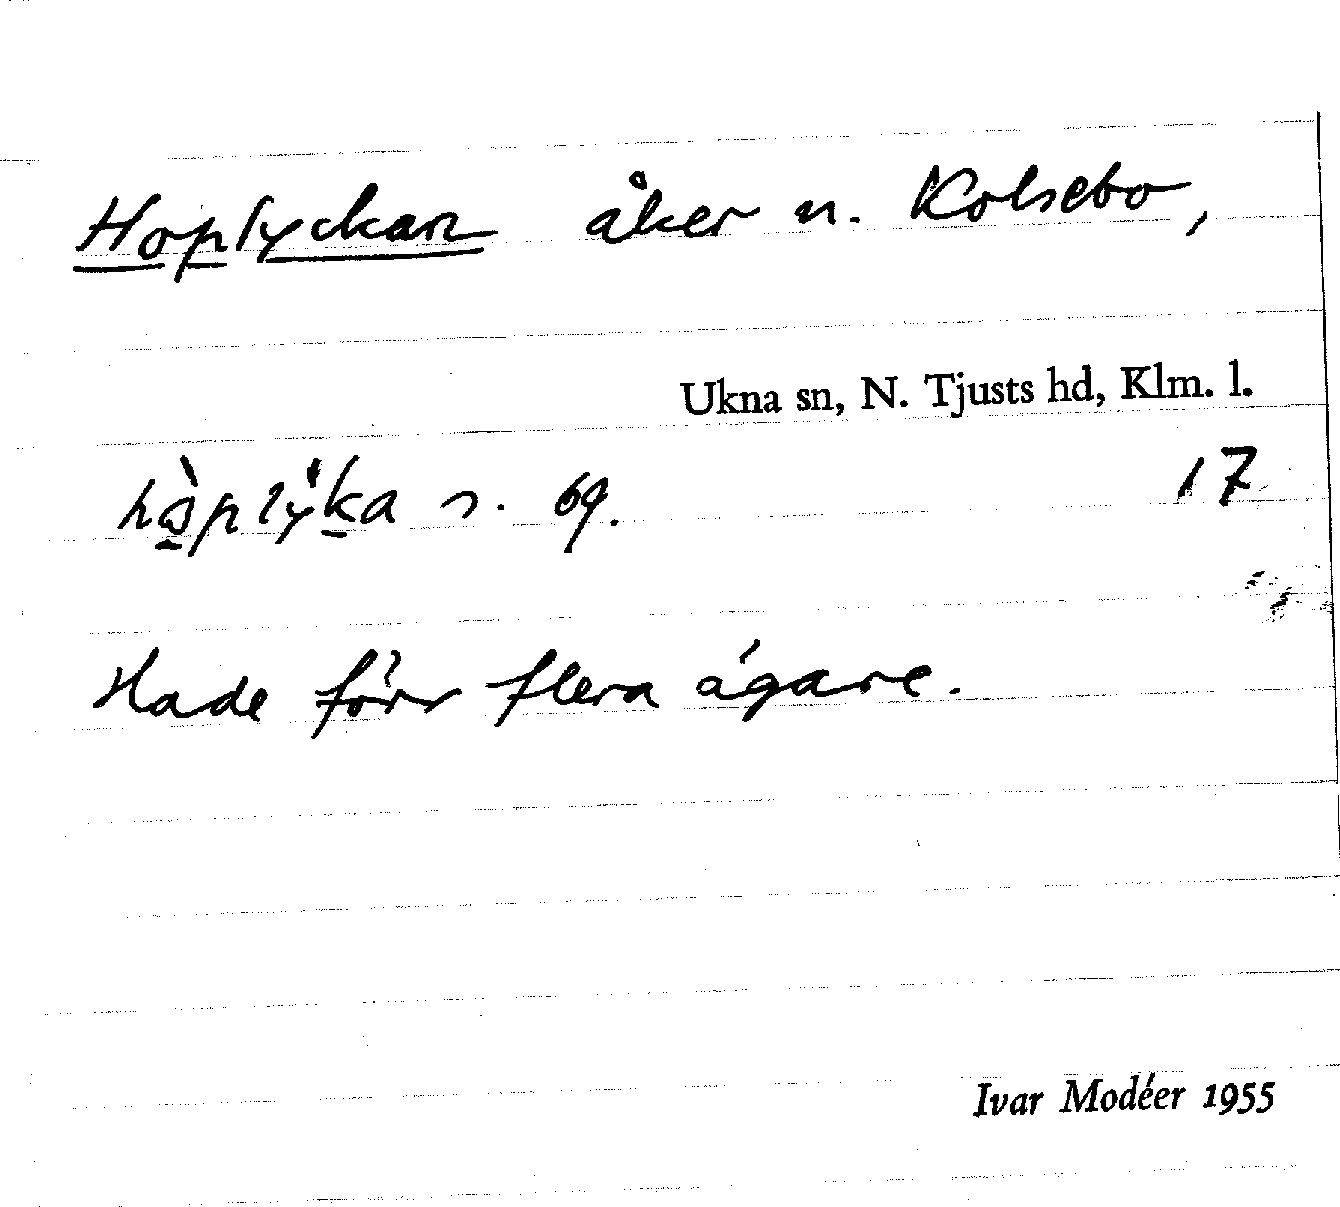 Hoplyckan åker n. Kolsebo,
Ukna sn, N. Tjusts hd, Klm. l.
hòplỳka n. 69. 17
Hade förr flera ägare.
Ivar Modéer 1955